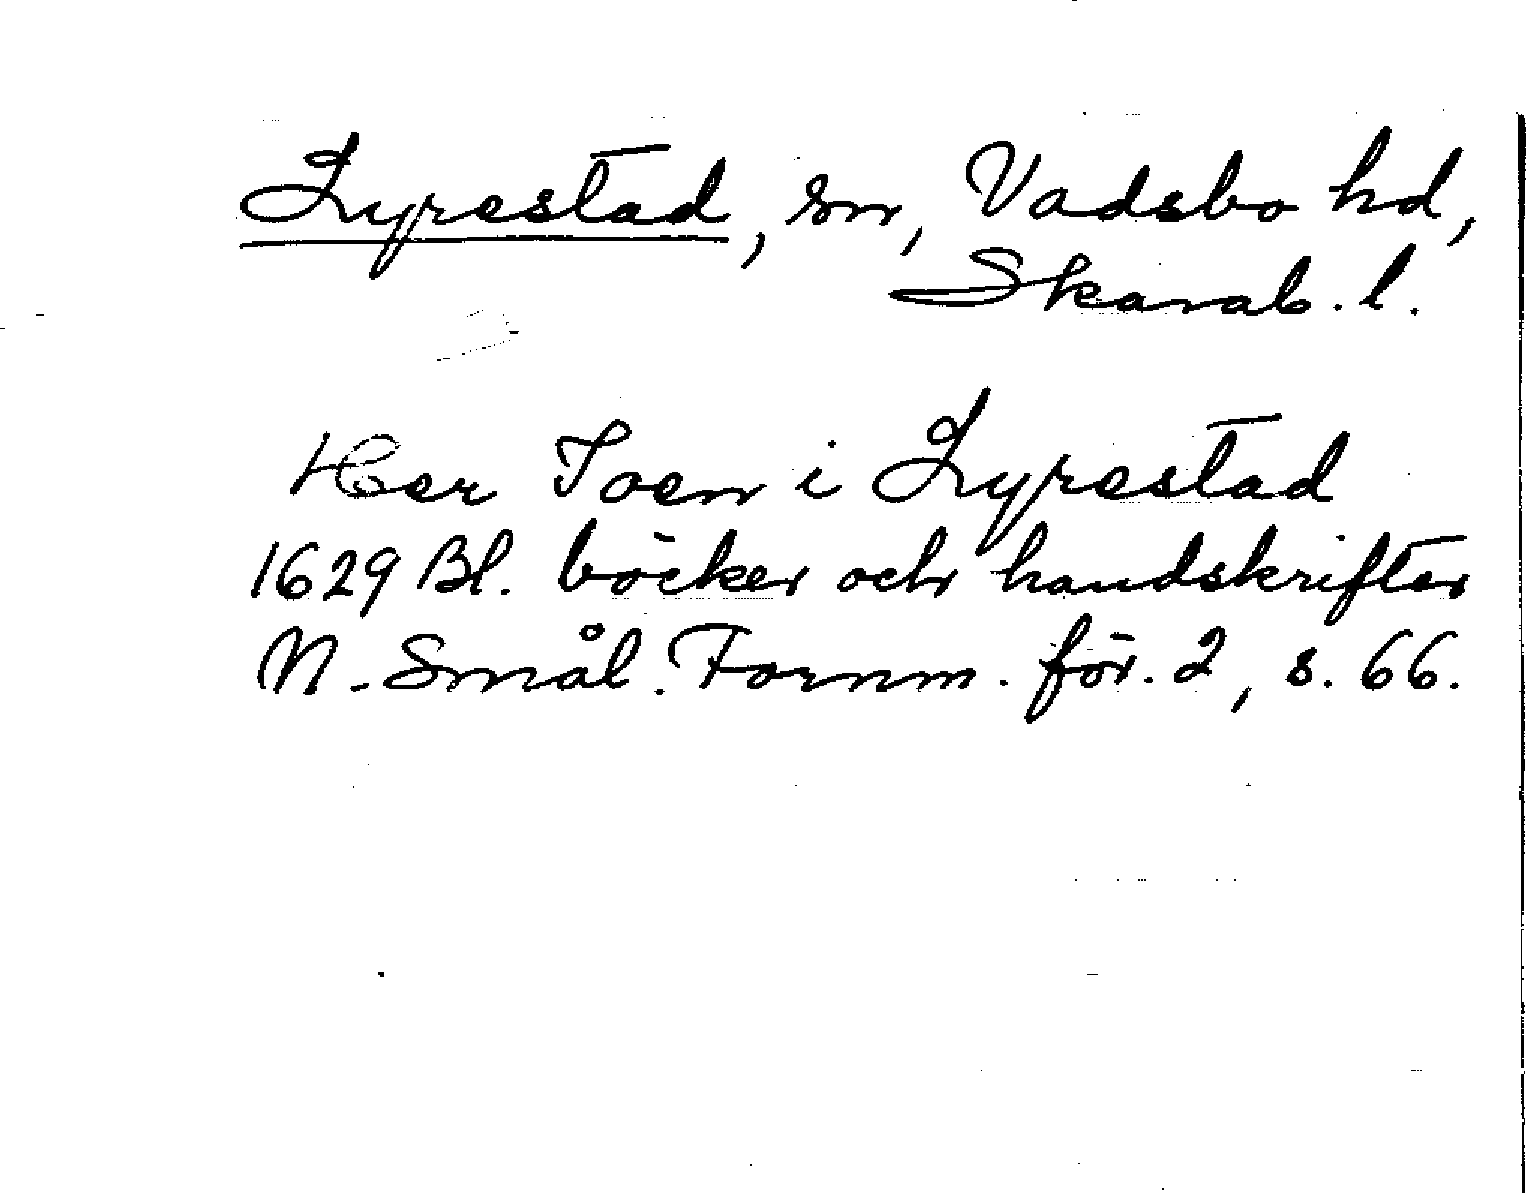 Lyrestad, sn, Vadsbo hd,
Skarab. l.
Her Joen i Lyrestad
1629 Bl. böcker och handskrifter
N. Smål. Fornm. för. 2, s. 66.